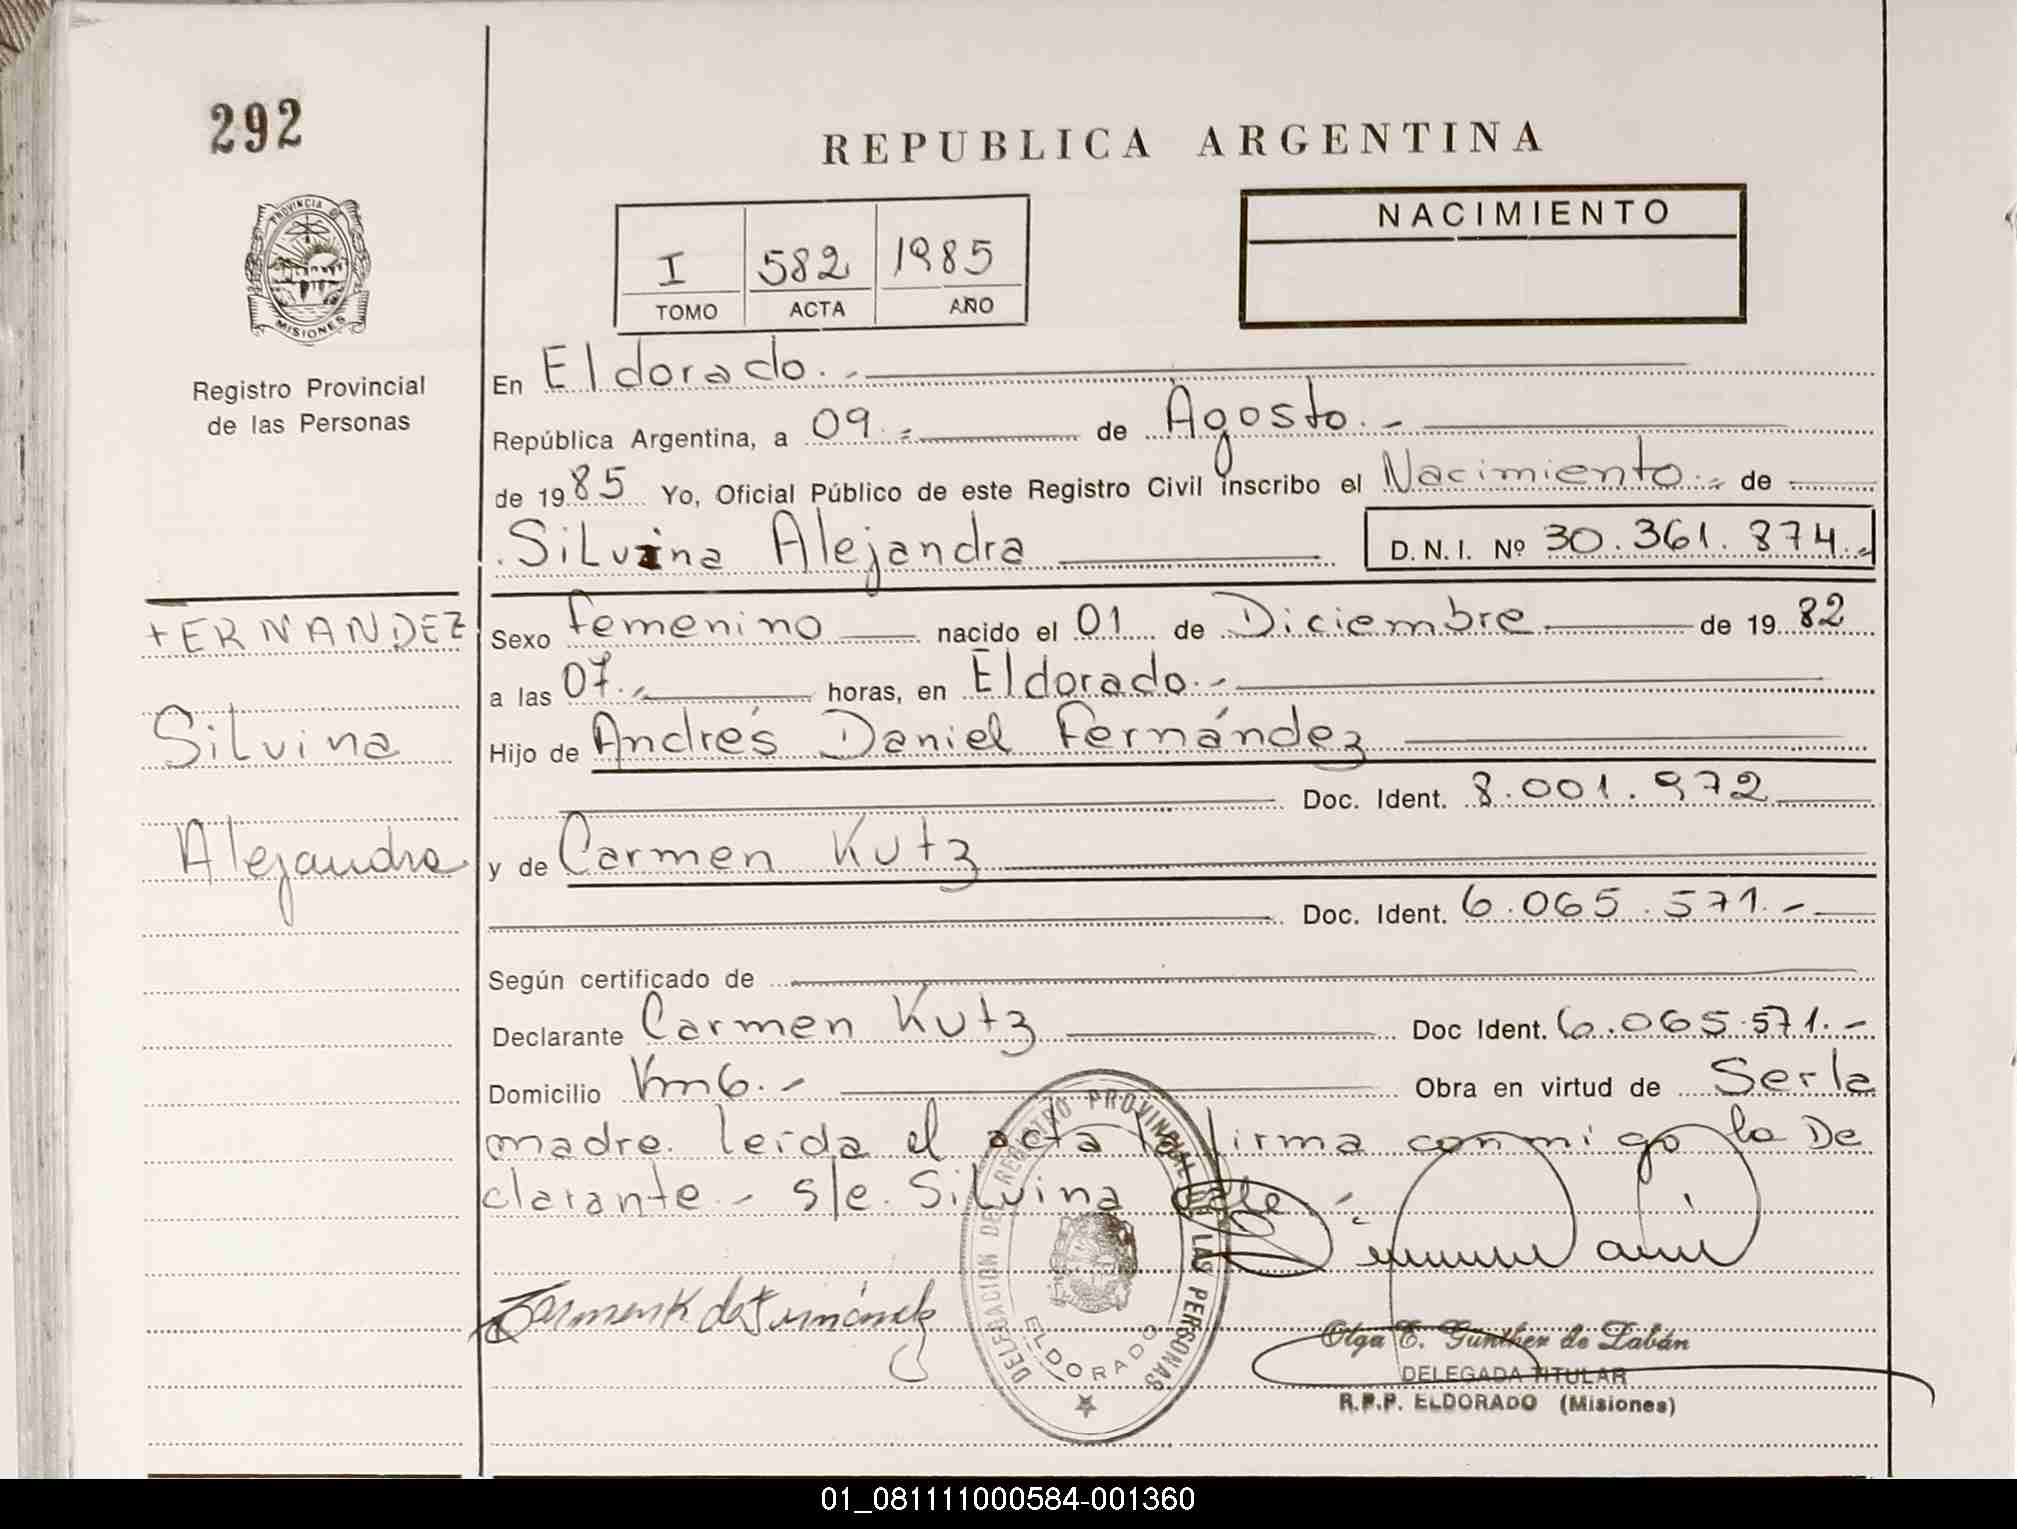 292
REPUBLICA ARGENTINA
PROVINCIA DE
MISIONES
Registro Provincial
de las Personas
I 582 1985
TOMO ACTA AÑO
NACIMIENTO
En Eldorado.-
República Argentina, a 09.- de Agosto.-
de 1985 Yo, Oficial Público de este Registro Civil inscribo el Nacimiento.- de
Silvina Alejandra D.N.I. Nº 30.361.874.-
FERNANDEZ
Silvina
Alejandra
Sexo femenino nacido el 01 de Diciembre de 1982
a las 07.- horas, en Eldorado.-
Hijo de Andrés Daniel Fernández
Doc. Ident. 8.001.972
y de Carmen Kutz
Doc. Ident. 6.065.571.-
Según certificado de
Declarante Carmen Kutz Doc Ident. 6.065.571.-
Domicilio Km6.- Obra en virtud de Serla
madre. leída el acta la firma conmigo la De
clarante.- s/e. Silvina Vale
DELEGACION DEL REGISTRO PROVINCIAL DE LAS PERSONAS
ELDORADO
Carmen K de Fernández
Olga E. Gunther de Zabán
DELEGADA TITULAR
R.P.P. ELDORADO (Misiones)
01_081111000584-001360